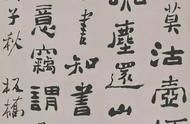 莫沽壺
塵還山
書知書
意竊謂
子秋 板橋